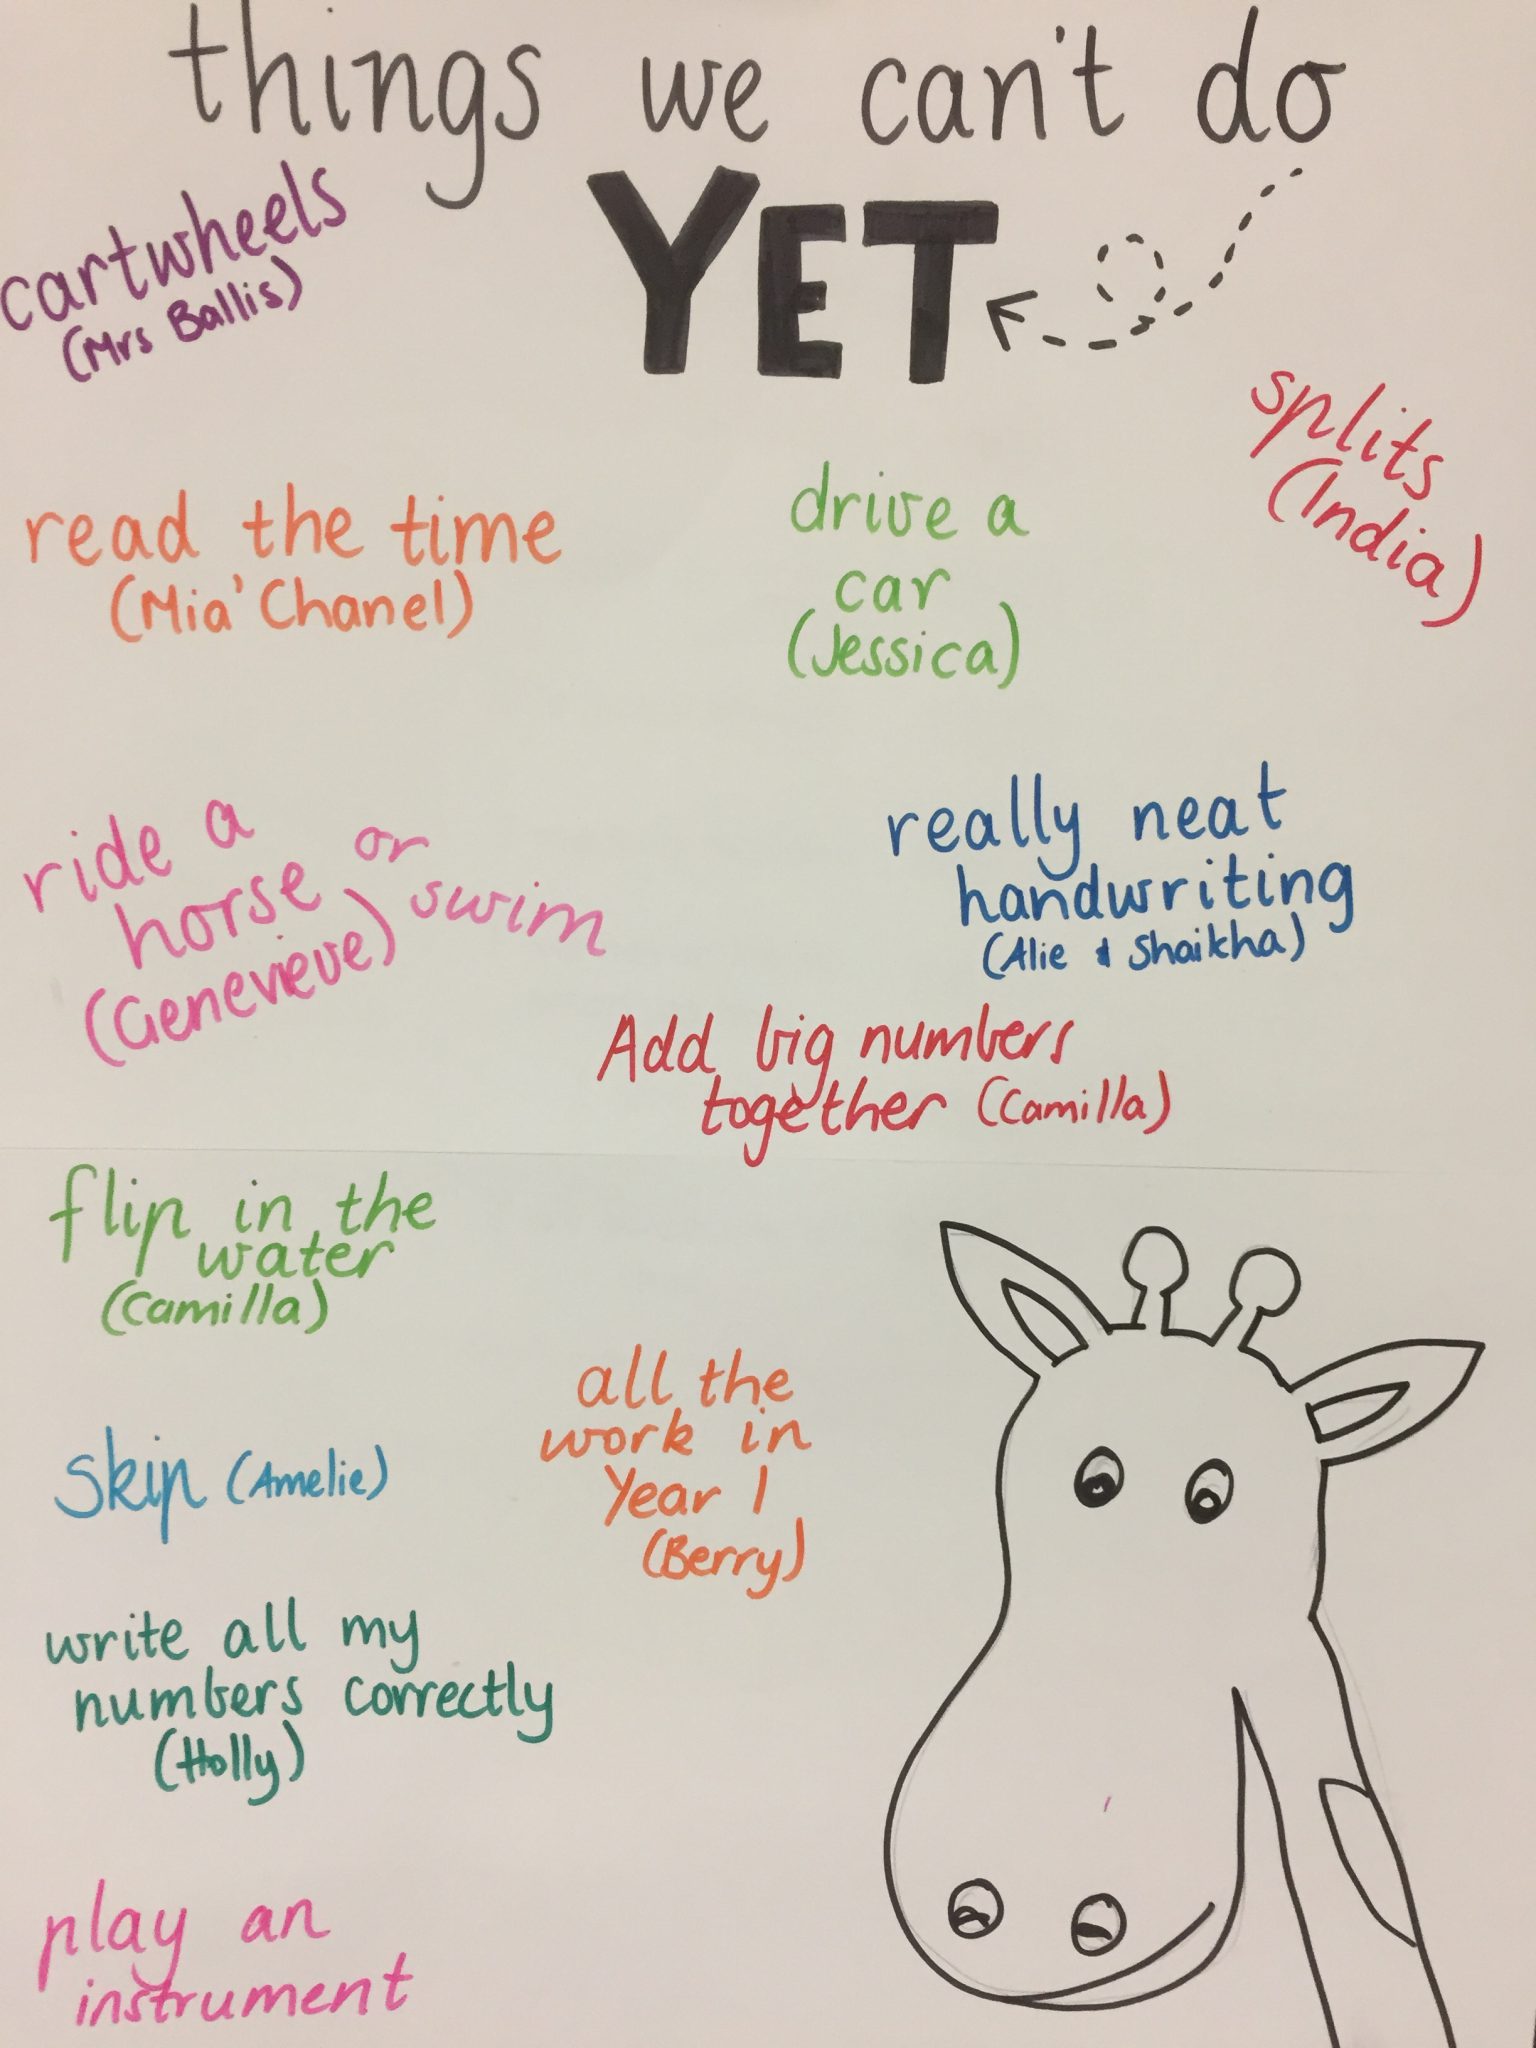 things we can't do
YET
cartwheels
(Mrs Ballis)
splits
(India)
read the time
(Mia'Chanel)
drive a
car
(Jessica)
ride a
horse or
swim
(Genevieve)
really neat
handwriting
(Alie & Shaikha)
Add big numbers
together (Camilla)
flip in the
water
(Camilla)
all the
work in
Year 1
(Berry)
skip (Amelie)
write all my
numbers correctly
(Holly)
play an
instrument